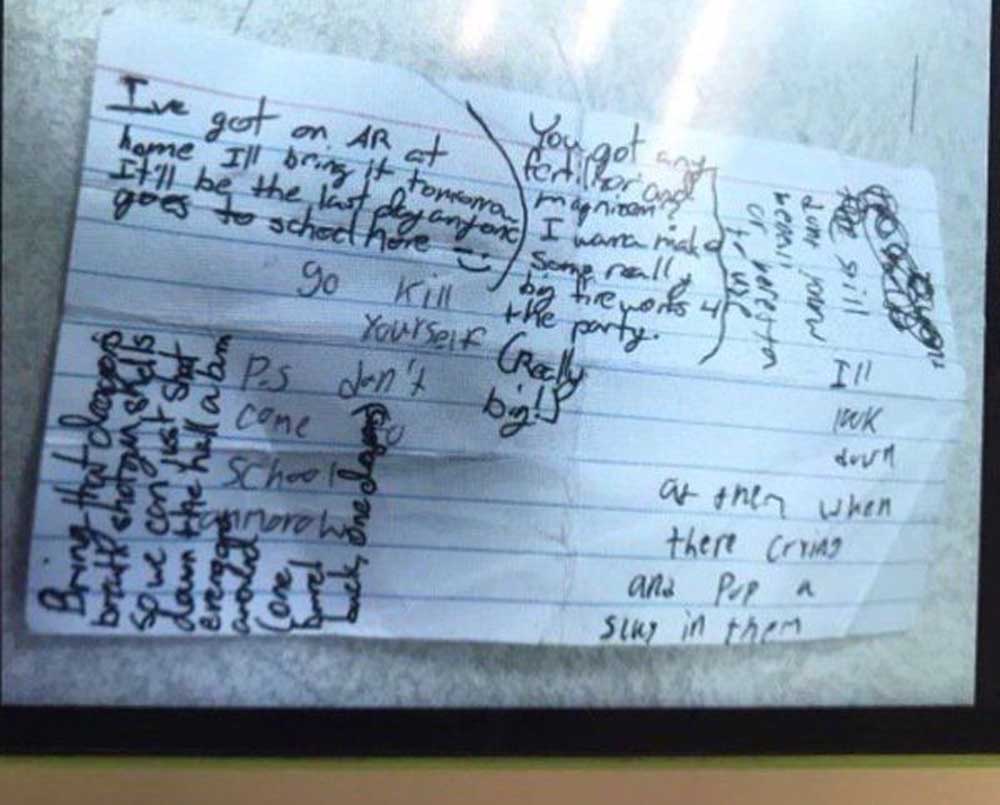 I've got an AR at
home I'll bring it tomorrow
It'll be the last day anyone
goes to school here :)
You got any
fertilhor and
magnizem?
I wana make
some really
big fireworks 4
the party.
(Really
big!)
go kill
Yourself
P.S don't
come to
School
Bring that
breath shotgun shells
so we can just shot
down the hall a bum
around
(one
barrel
still
down
or
use
I'll
look
down
at them when
there crying
and Pup a
slug in them